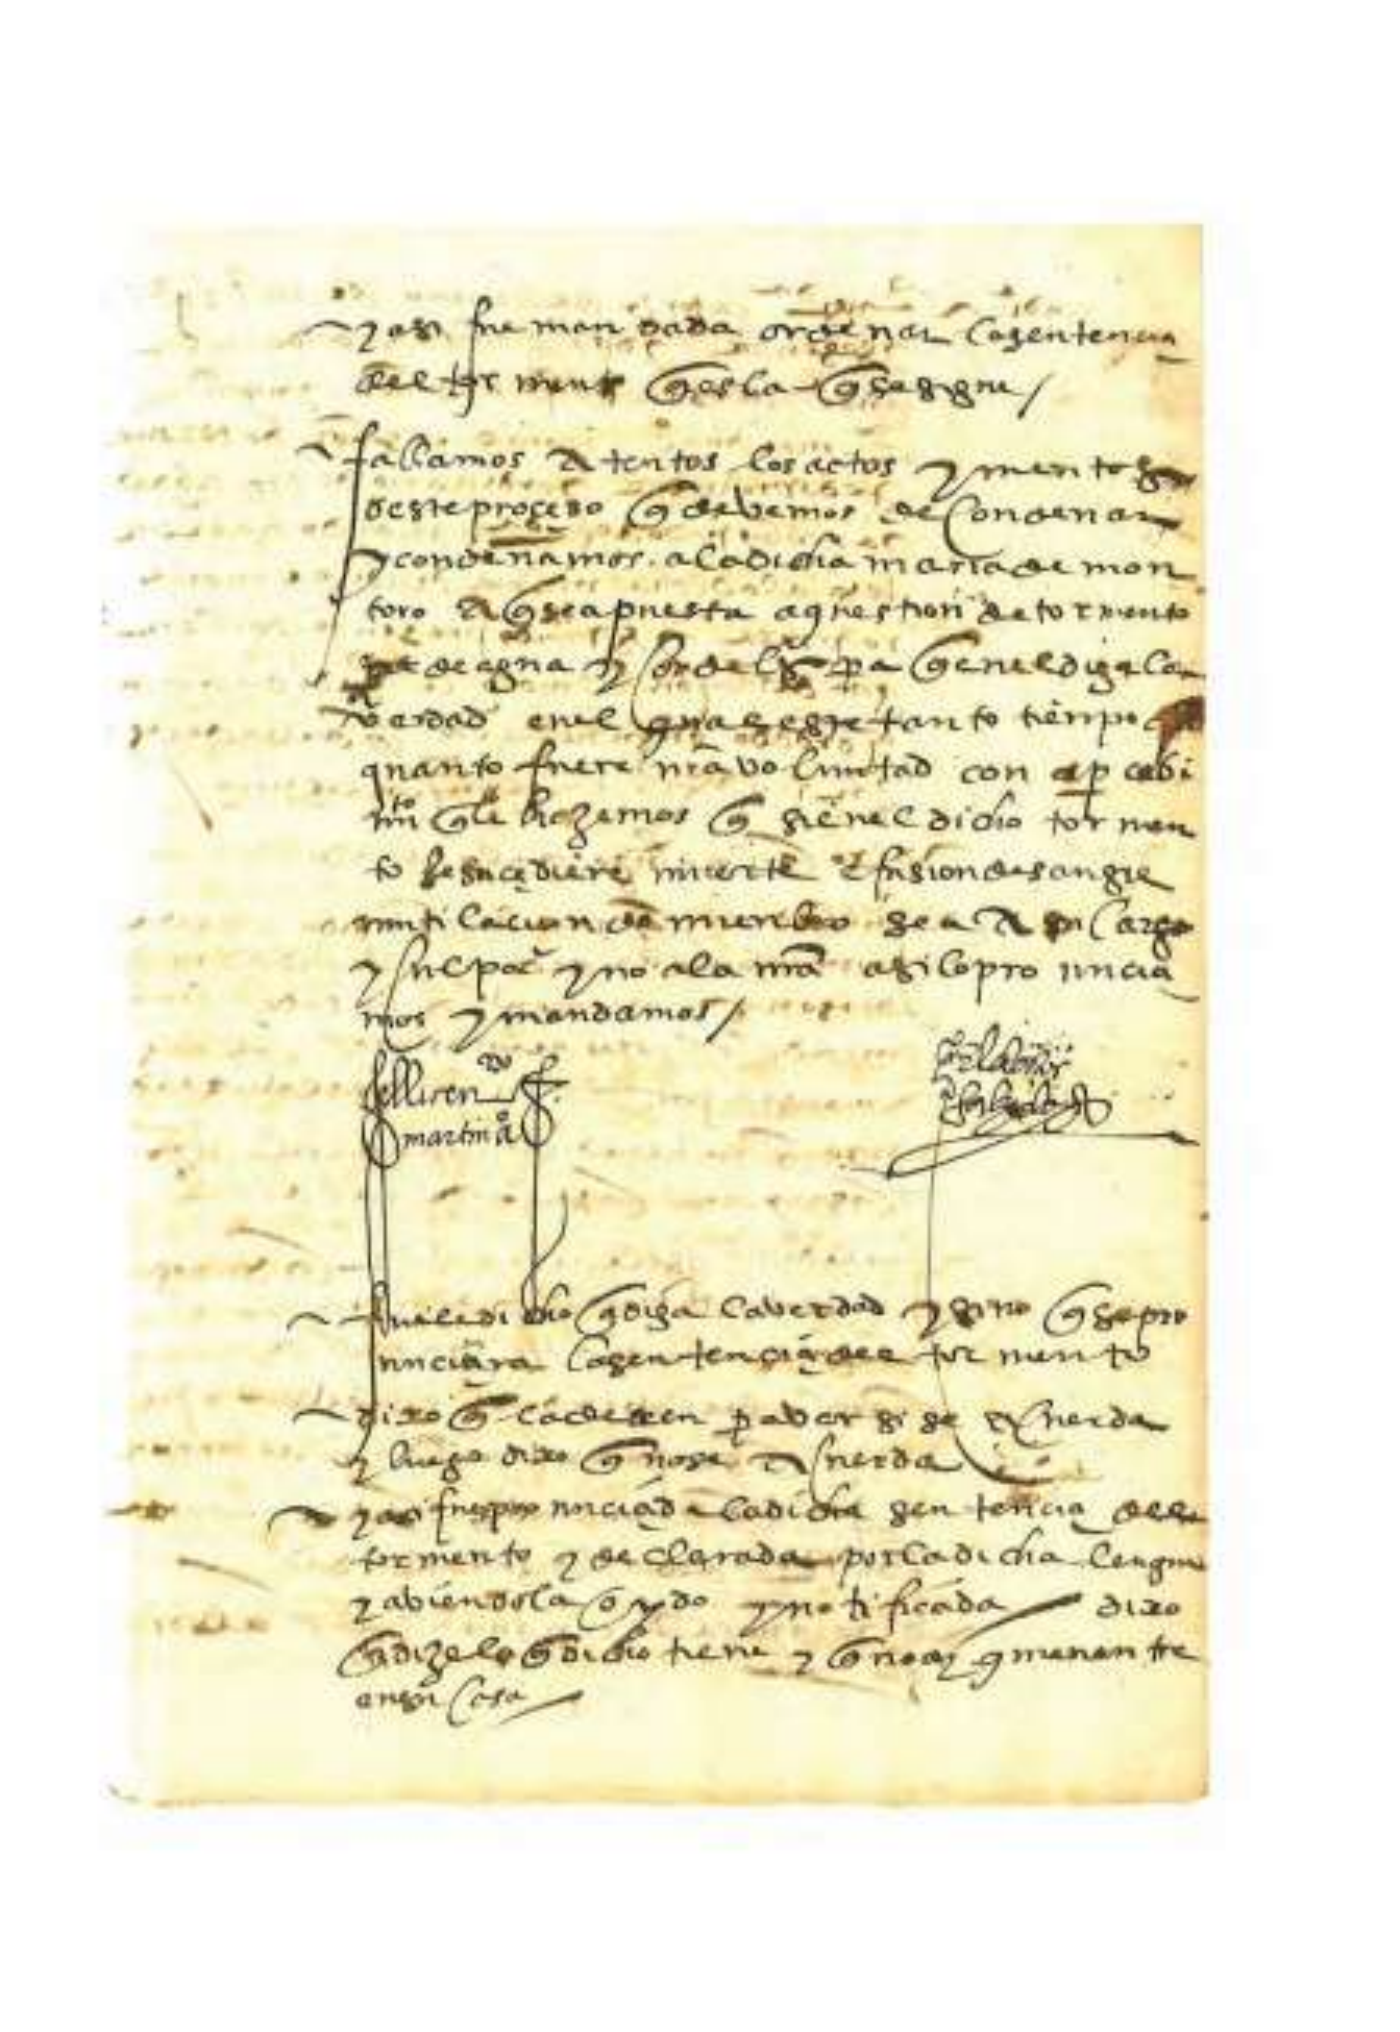 y asi fue mandada ordenar la sentencia
del tormento q es la q se sigue /
fallamos atentos los actos y meritos
deste proçeso q devemos de condenar
y condenamos a la dicha maria de mon
toro a q sea puesta a question de tormento
de agua y cordeles pa q en el diga la
verdad en el qual este tanto tienpo
quanto fuere nra voluntad con apercebi
mito q le hazemos q si en el dicho tormen
to le suçediere muerte efusion de sangre
mutilacion de mienbro sea a su cargo
y culpa y no a la nra asi lo pronuncia
mos y mandamos /
El licendo
martin
fuele dicho q diga la verdad y si no q se pro
nunciara la sentençia del tormento
dixo q la dexen pa ver si se acuerda
y luego dixo q no se acuerda
y asi fue pronunciada la dicha sentencia del
tormento y declarada por la dicha lengua
y abiendola oydo y notificada dixo
q dize lo q dicho tiene y q no ay quemenente
en su casa